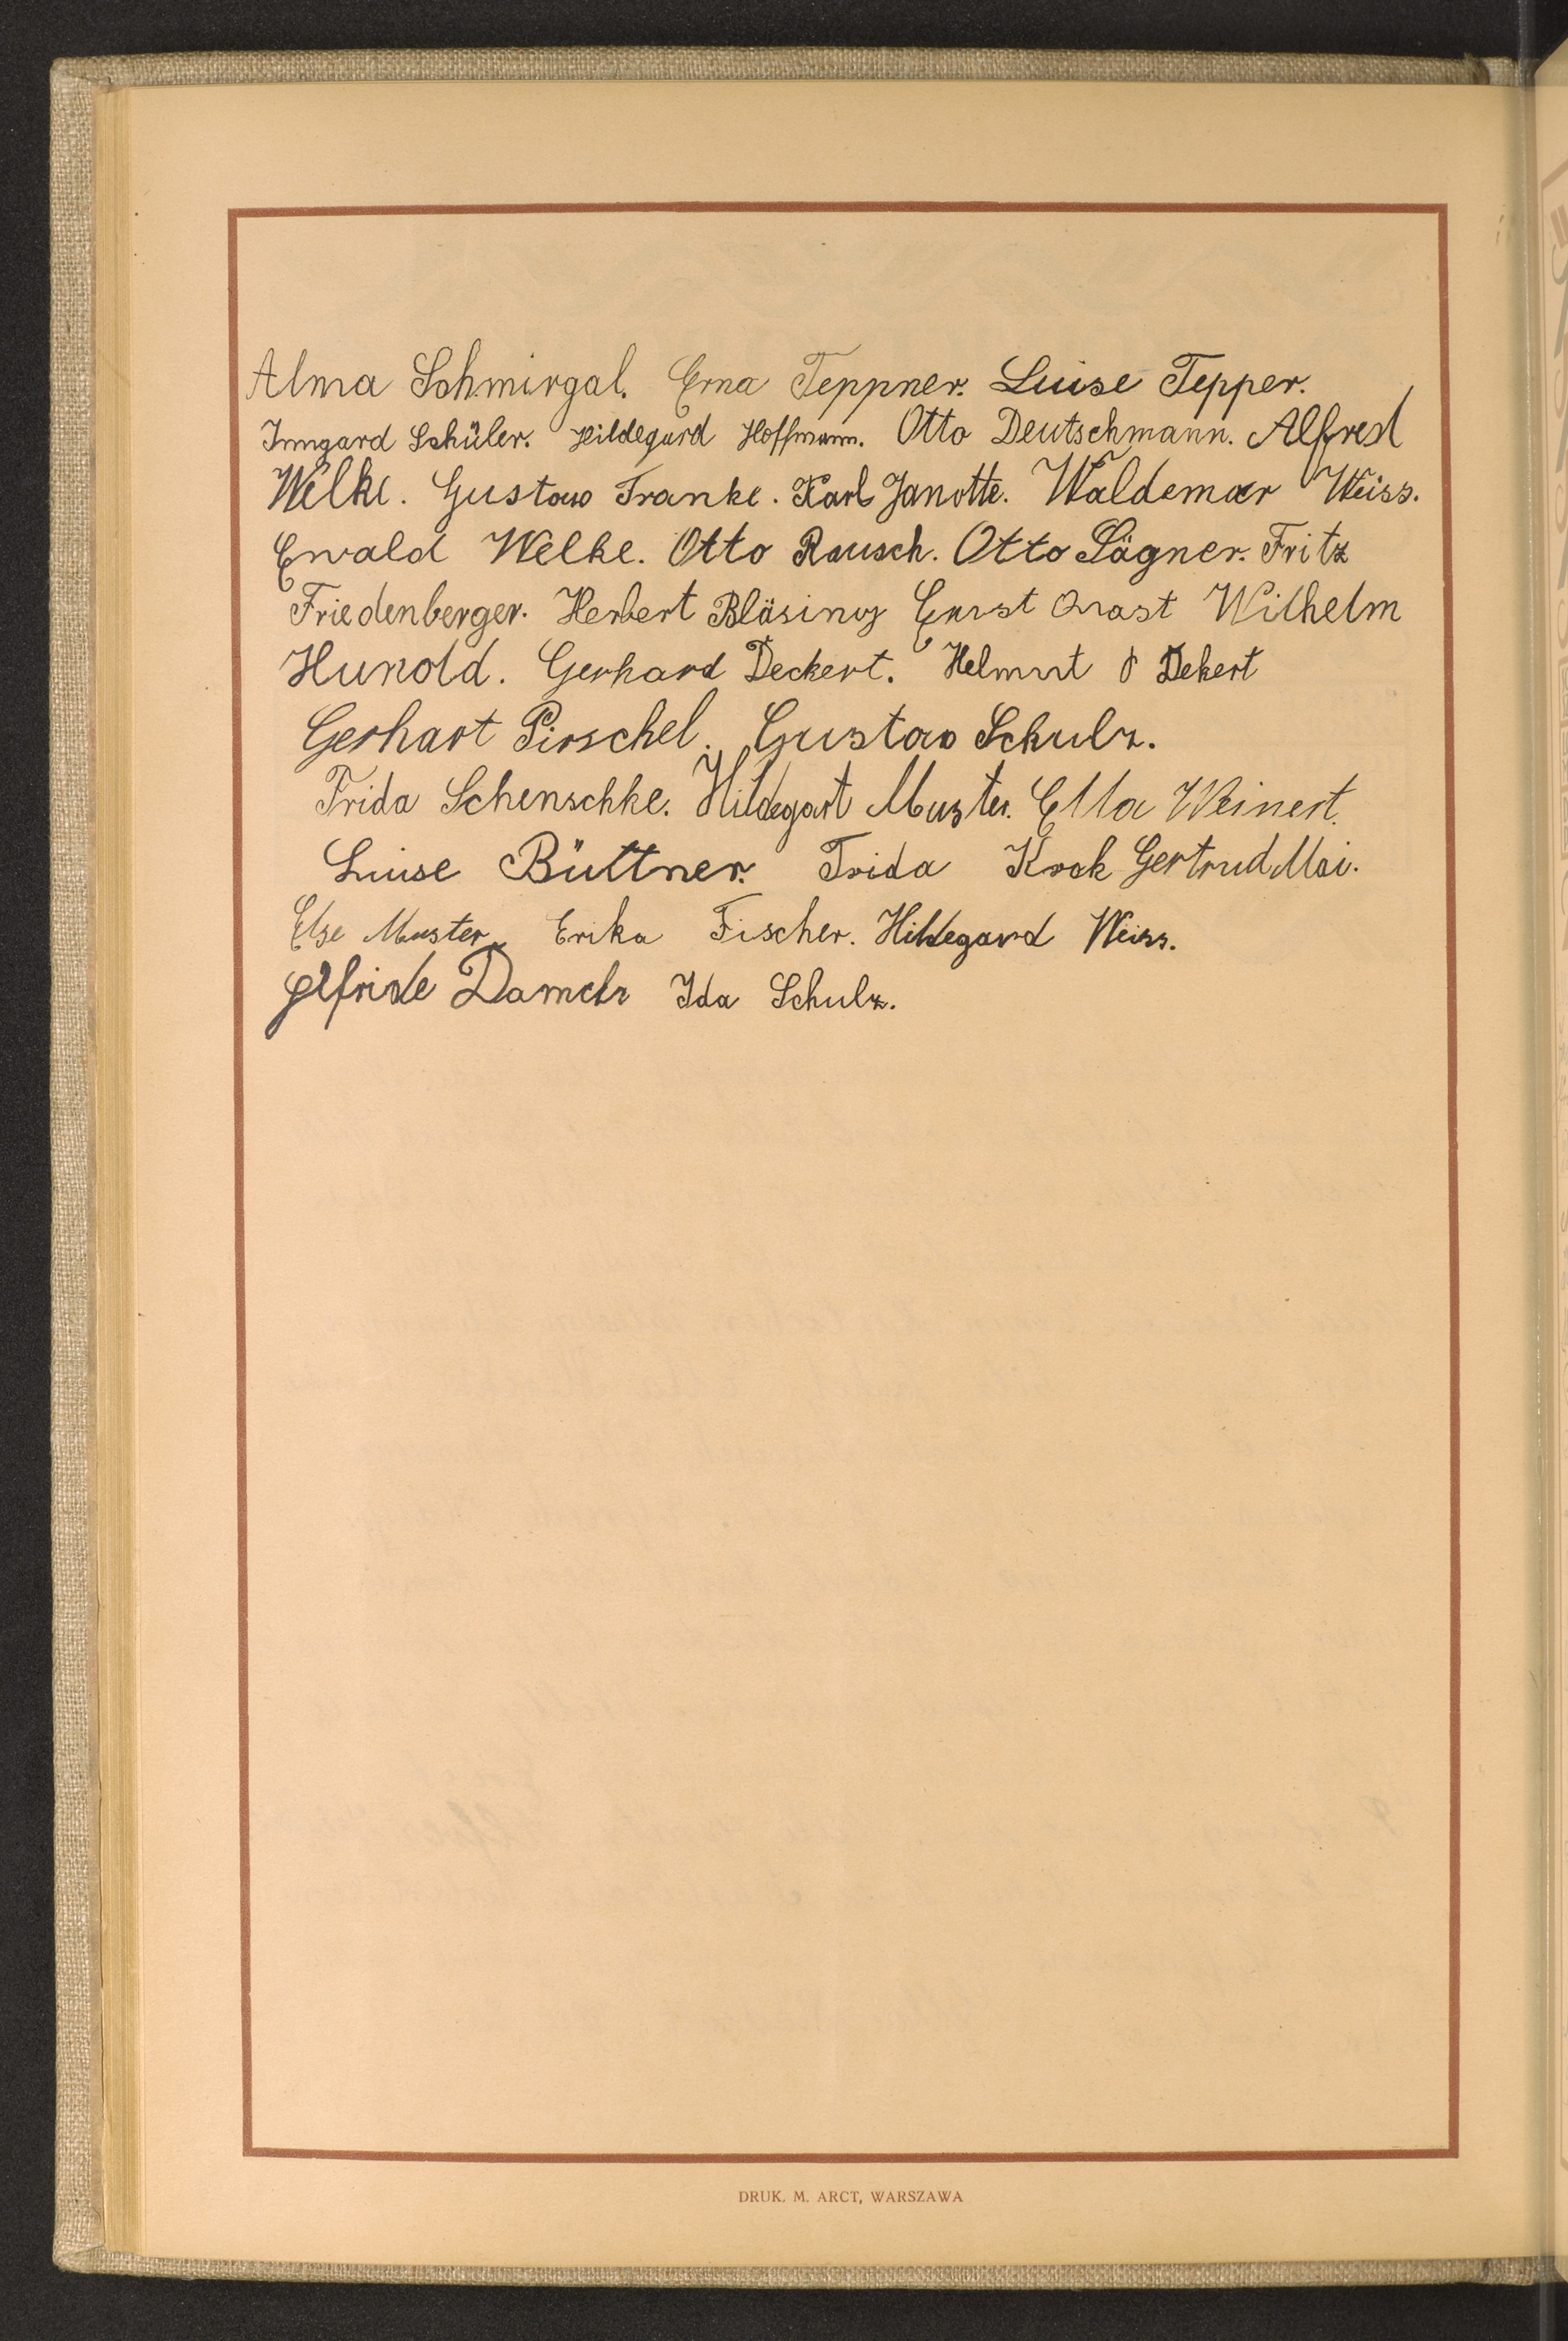 Alma Schmirgal. Erna Teppner. Luise Tepper.
Irmgard Schüler. Hildegard Hoffmann. Otto Deutschmann. Alfred
Welke. Gustaw Franke. Karl Janotte. Waldemar Weiss.
Ewald Welke. Otto Rausch. Otto Sägner. Fritz
Friedenberger. Herbert Bläsing Ernst Wilhelm
Hunold. Gerhard Deckert. Helmut Dekert
Gerhart Pirschel. Gustav Schulz.
Frida Schenschke. Hildegart Muster. Ella Weinert.
Luise Büttner. Frida Krok Gertrud Mai.
Else Muster Erika Fischer. Hildegard Weiss.
Elfride Ida Schulz.
DRUK. M. ARCT, WARSZAWA